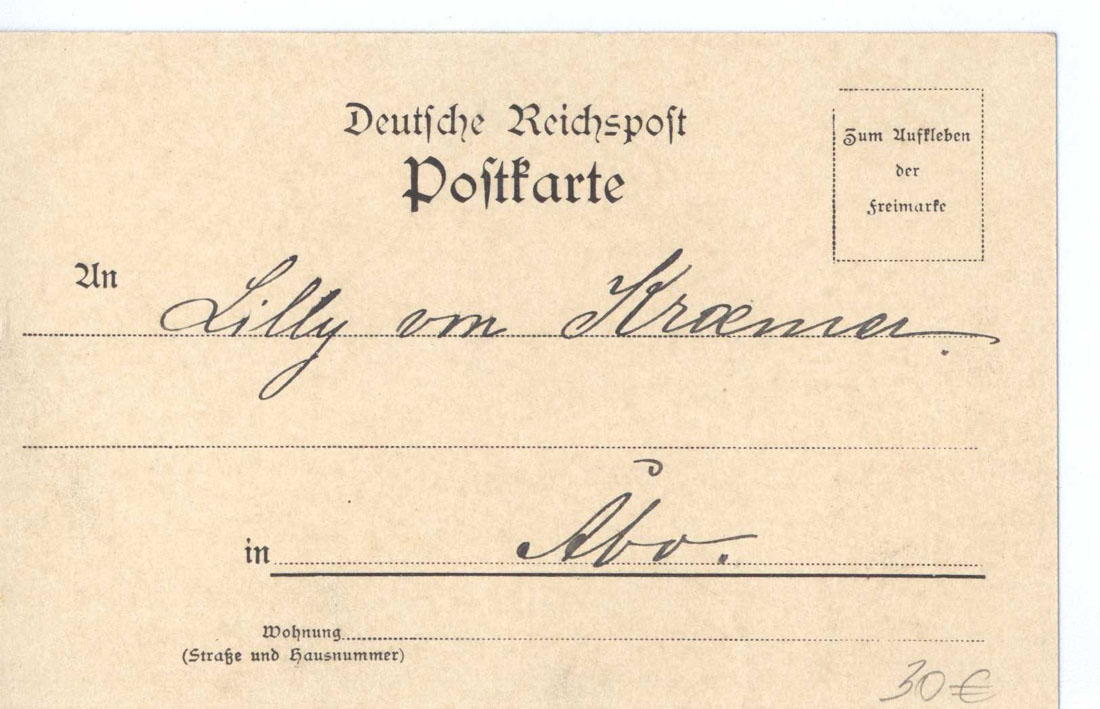 Deutsche Reichspost
Postkarte
Zum Aufkleben
der
Freimarke
An Lilly von Kræmer.
in Åbo.
Wohnung
(Straße und Hausnummer)
30 €